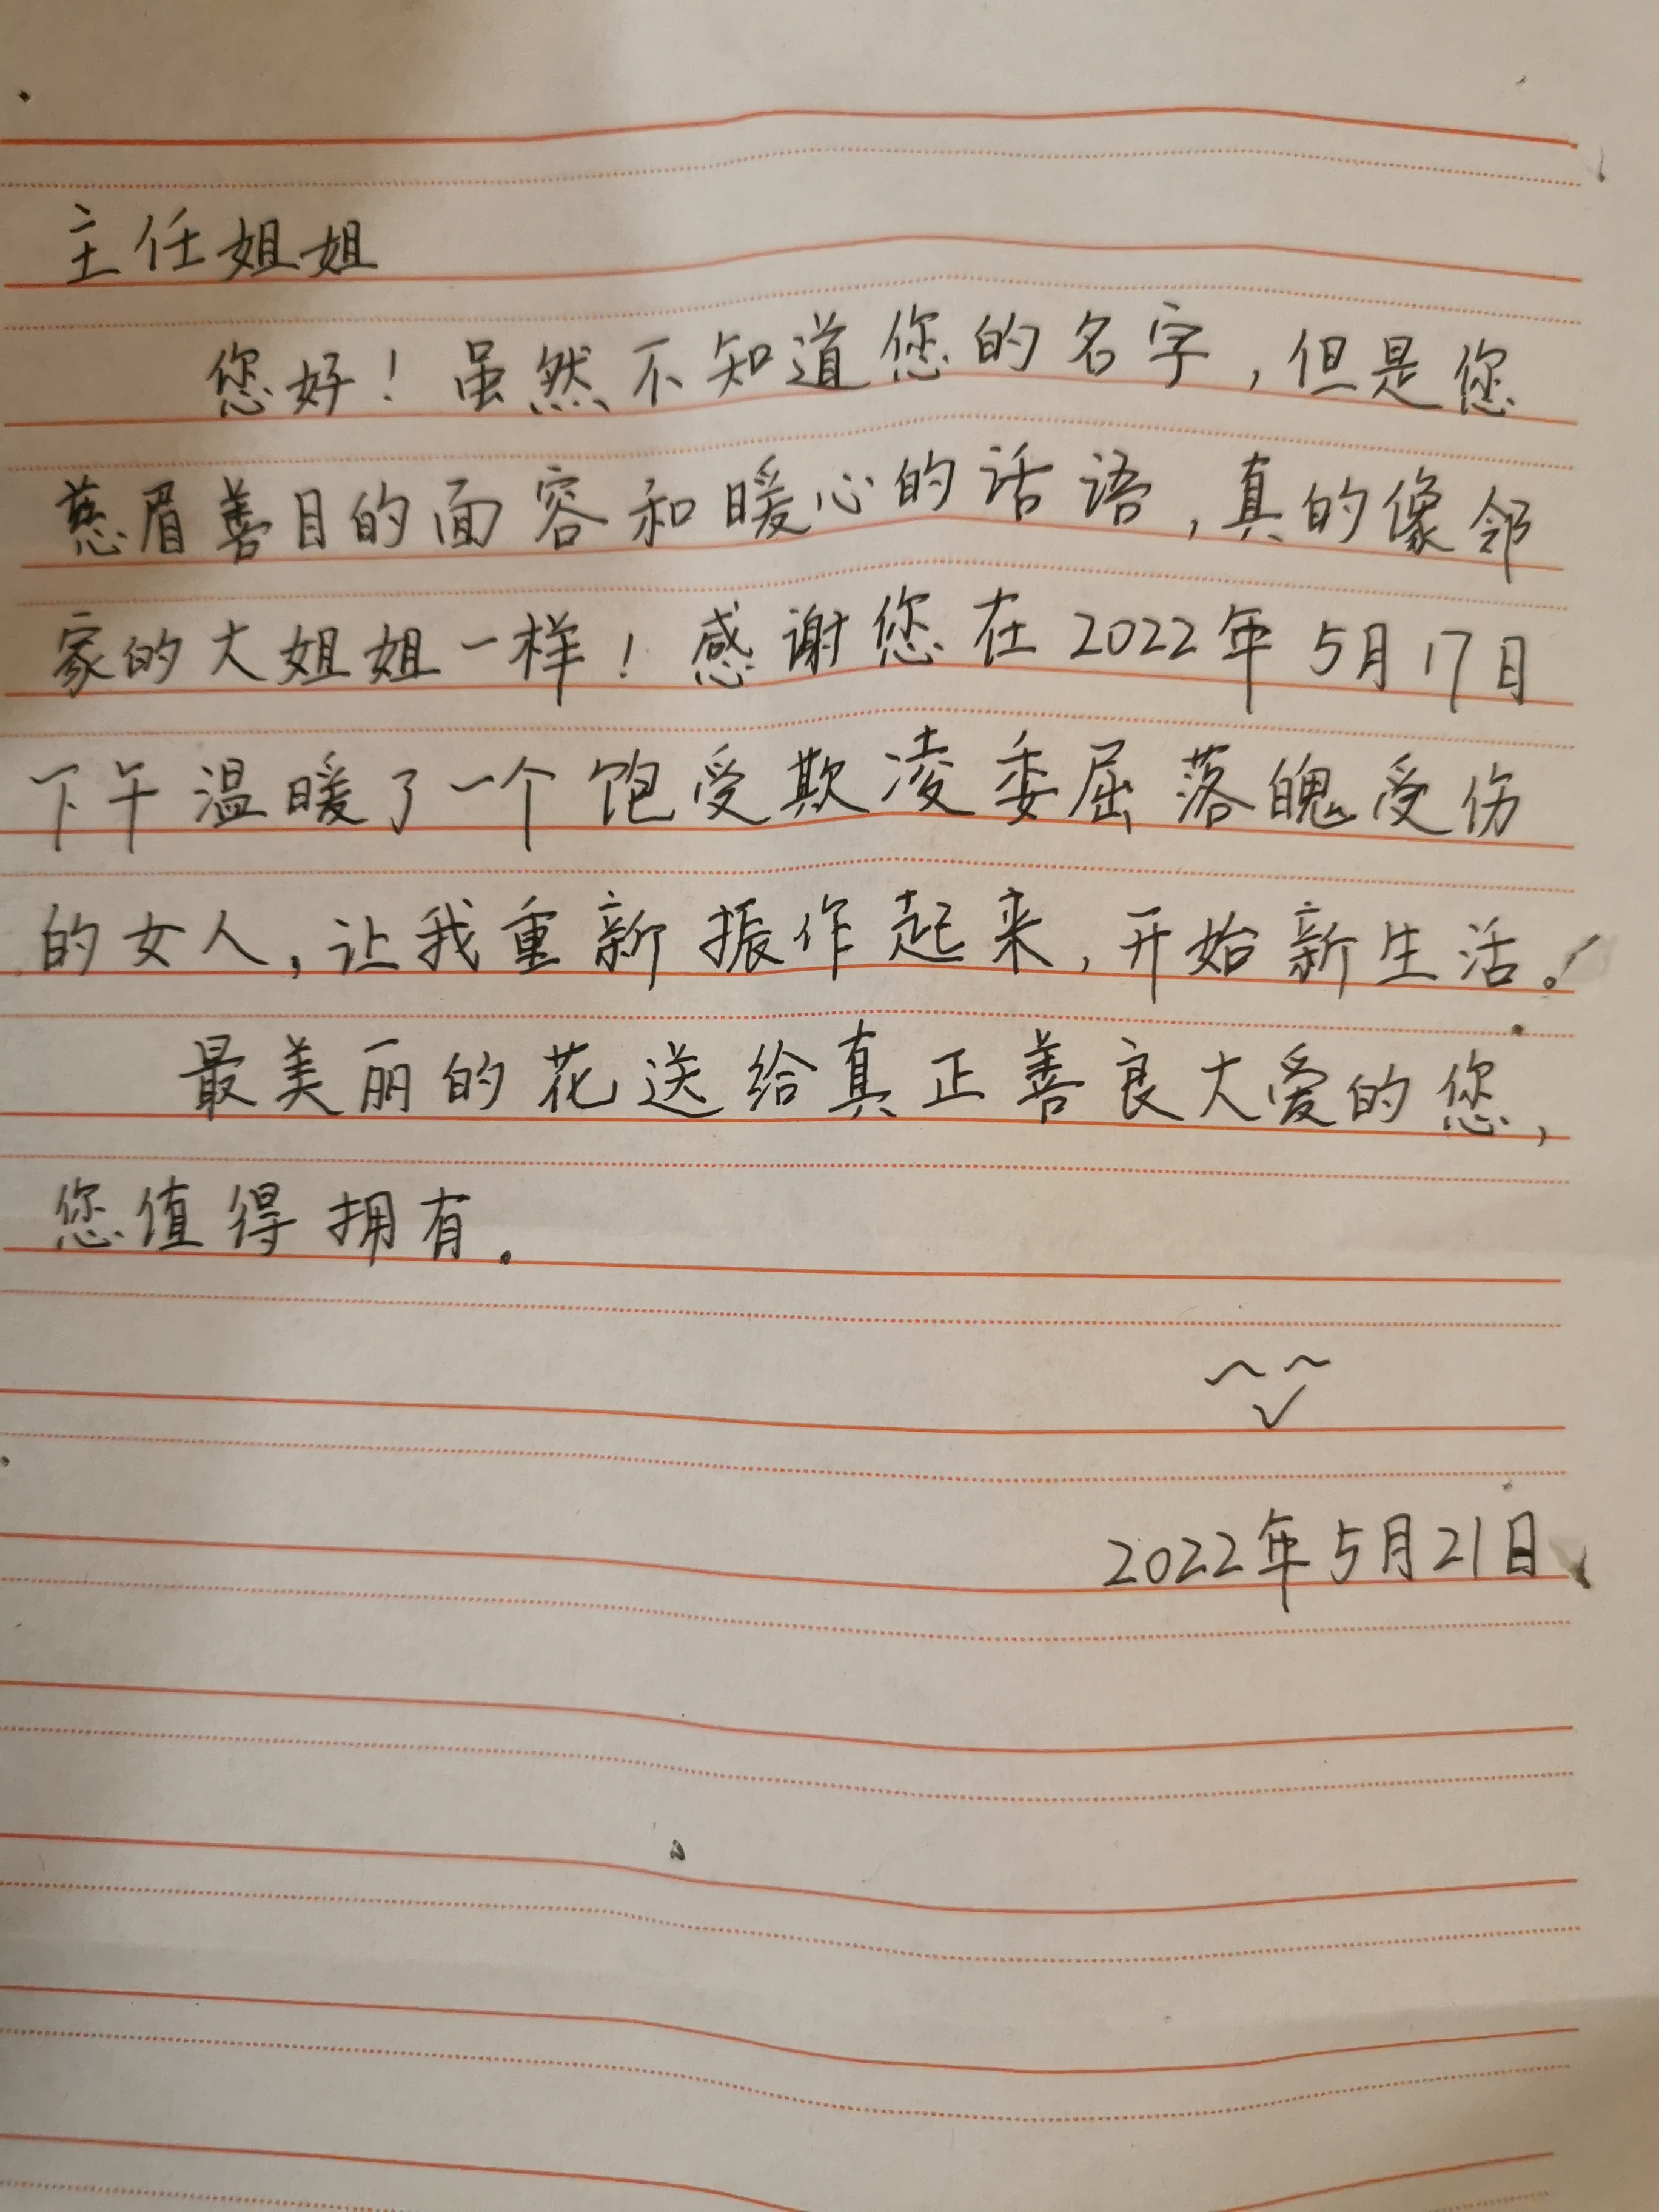 主任姐姐
您好！虽然不知道您的名字，但是您
慈眉善目的面容和暖心的话语，真的像邻
家的大姐姐一样！感谢您在2022年5月17日
下午温暖了一个饱受欺凌委屈落魄受伤
的女人，让我重新振作起来，开始新生活。
最美丽的花送给真正善良大爱的您，
您值得拥有。
2022年5月21日